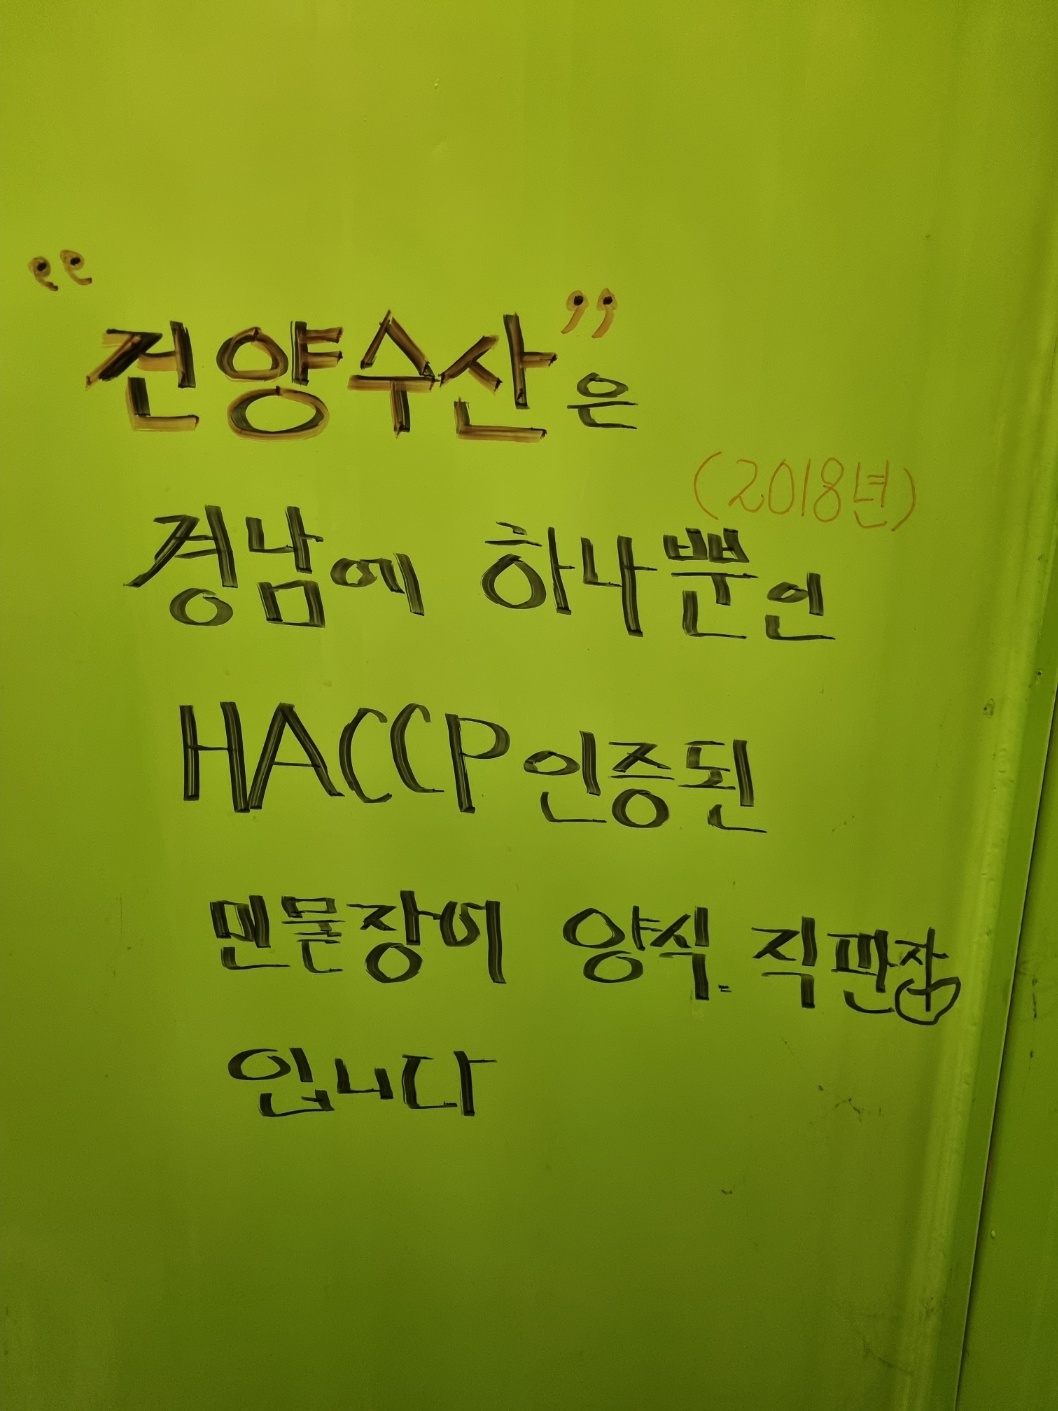 “진양수산”은
(2018년)
경남에 하나뿐인
HACCP 인증된
민물장어 양식. 직판장
입니다